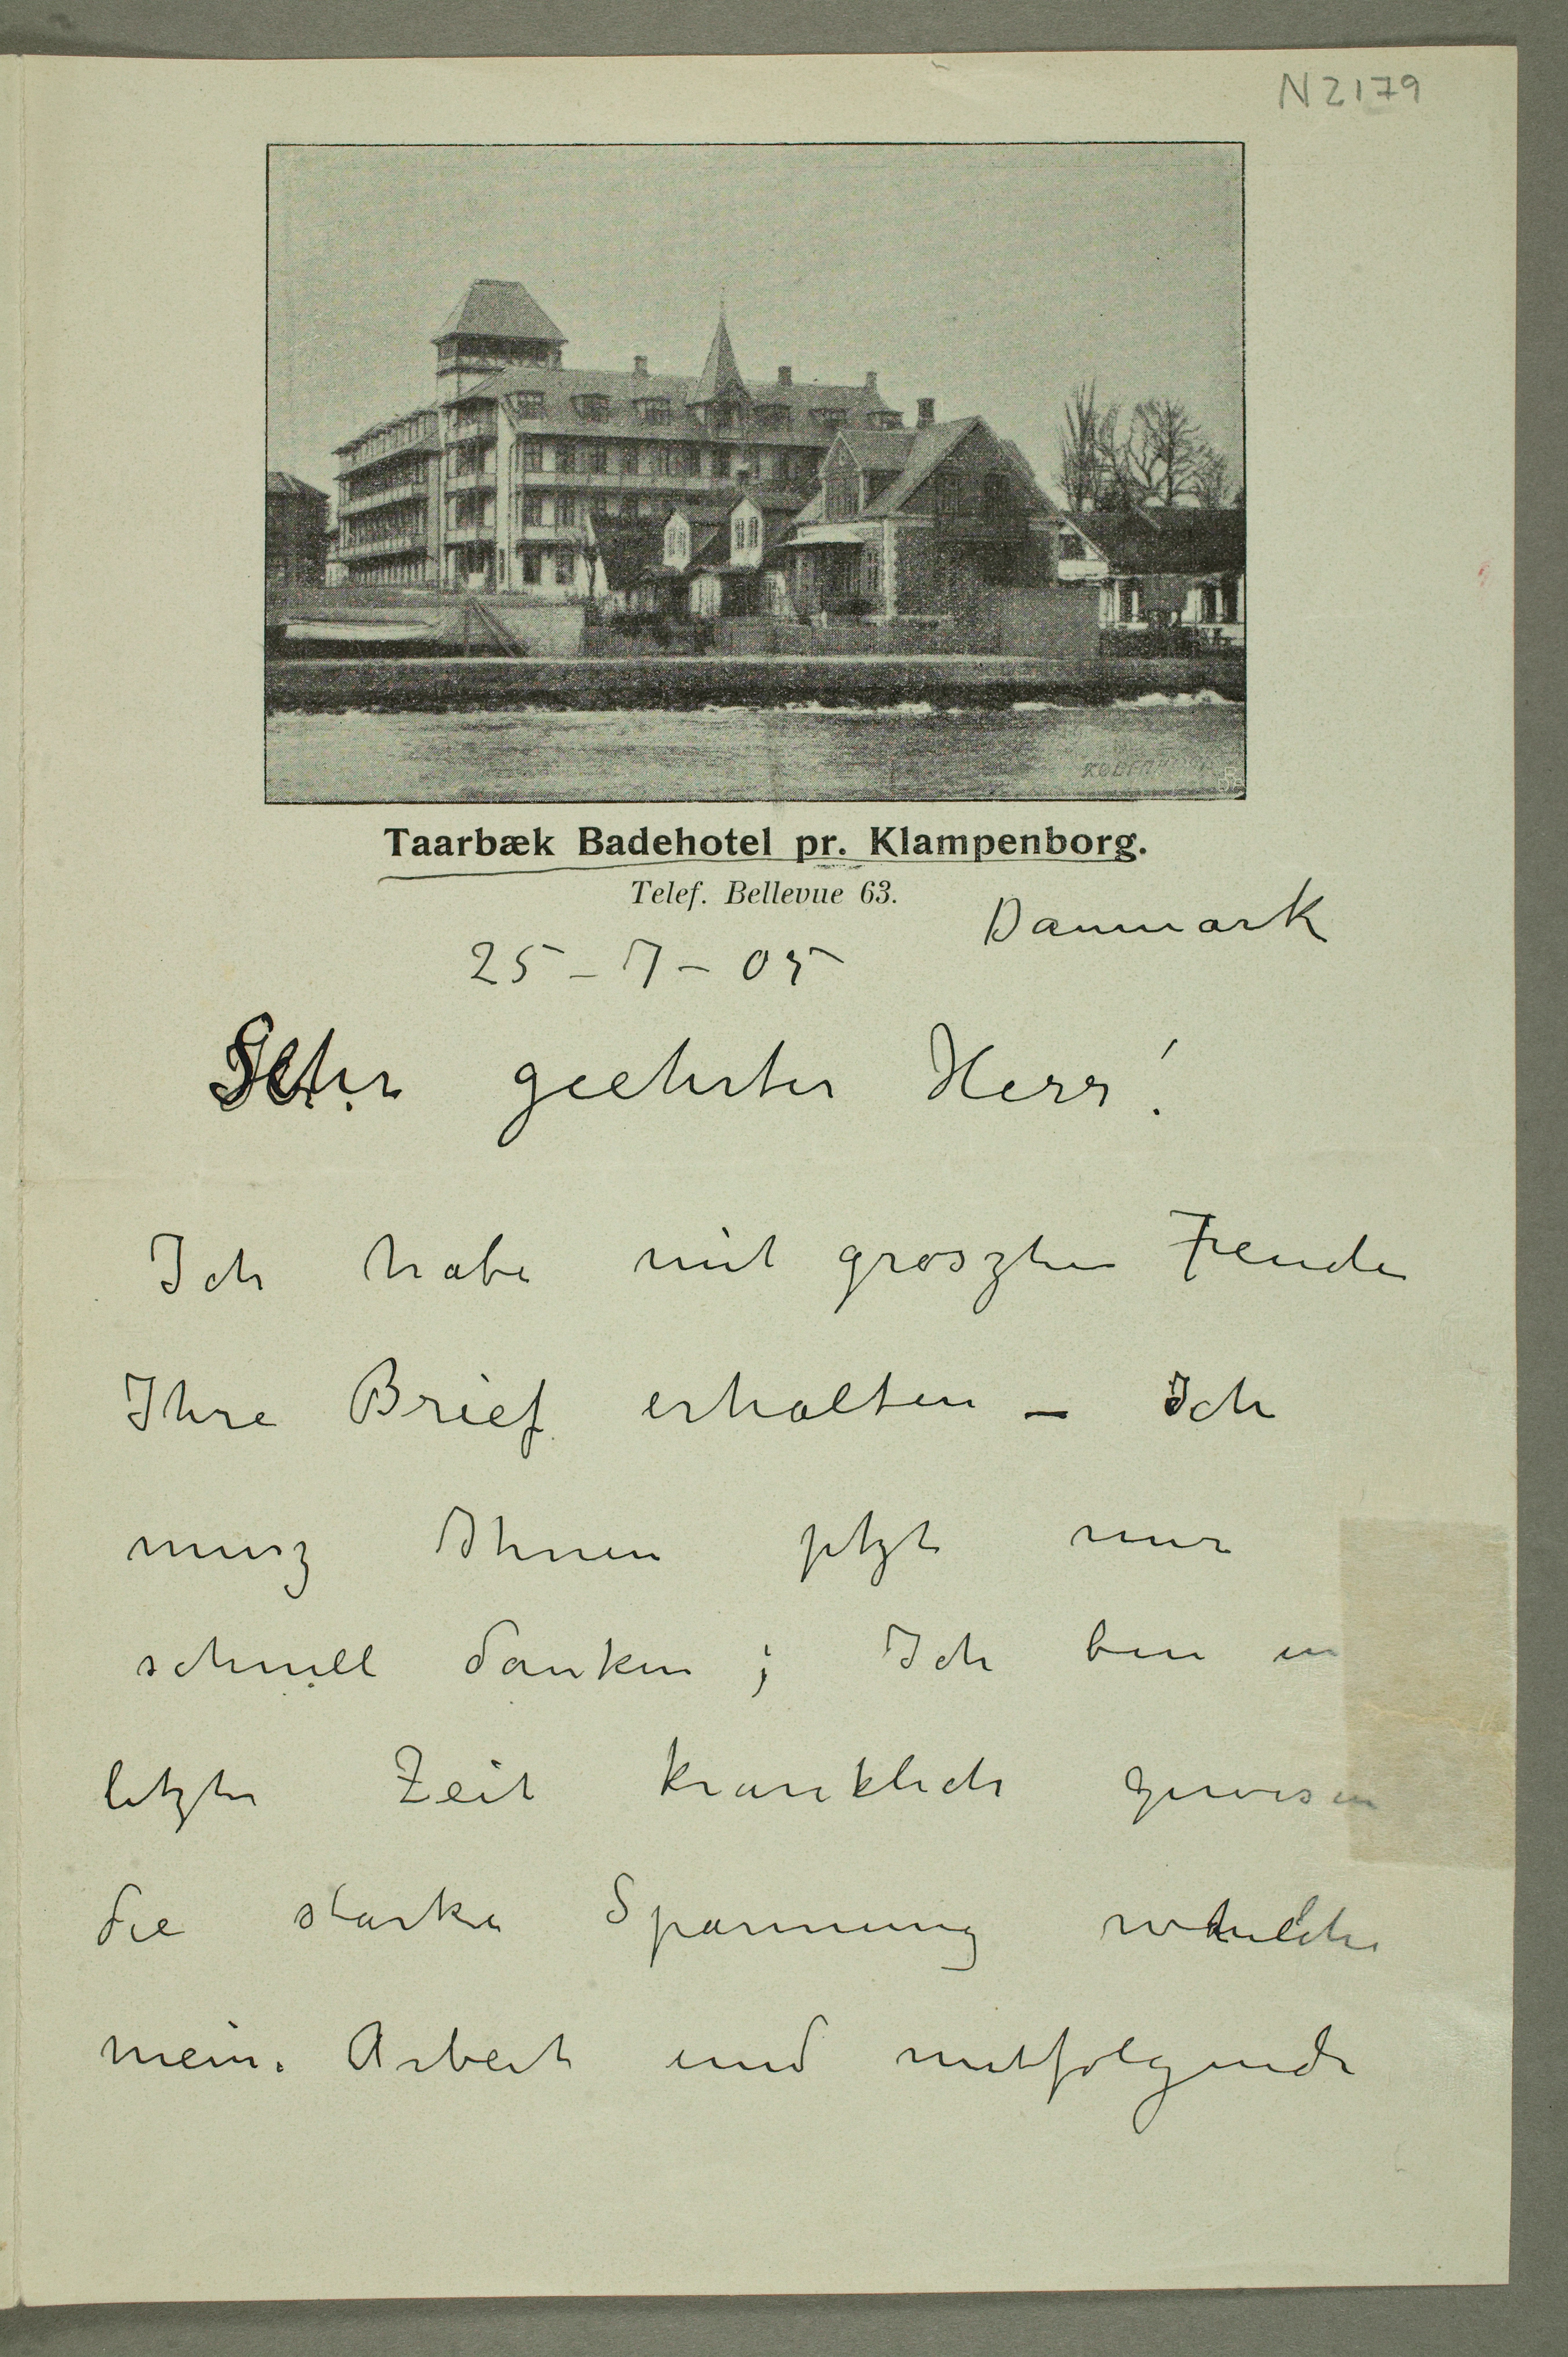 N 2179
Taarbæk Badehotel pr. Klampenborg.
Telef. Bellevue 63.
Danmark
25-7-05
Sehr geehrter Herr!
Ich habe mit groszter Freude
Ihre Brief erhalten – Ich
musz Ihnen jetzt nur
schnell danken; Ich bin in
letzter Zeit kranklich gewesen
die starke Spannung welche
meine Arbeit und mitfolgende